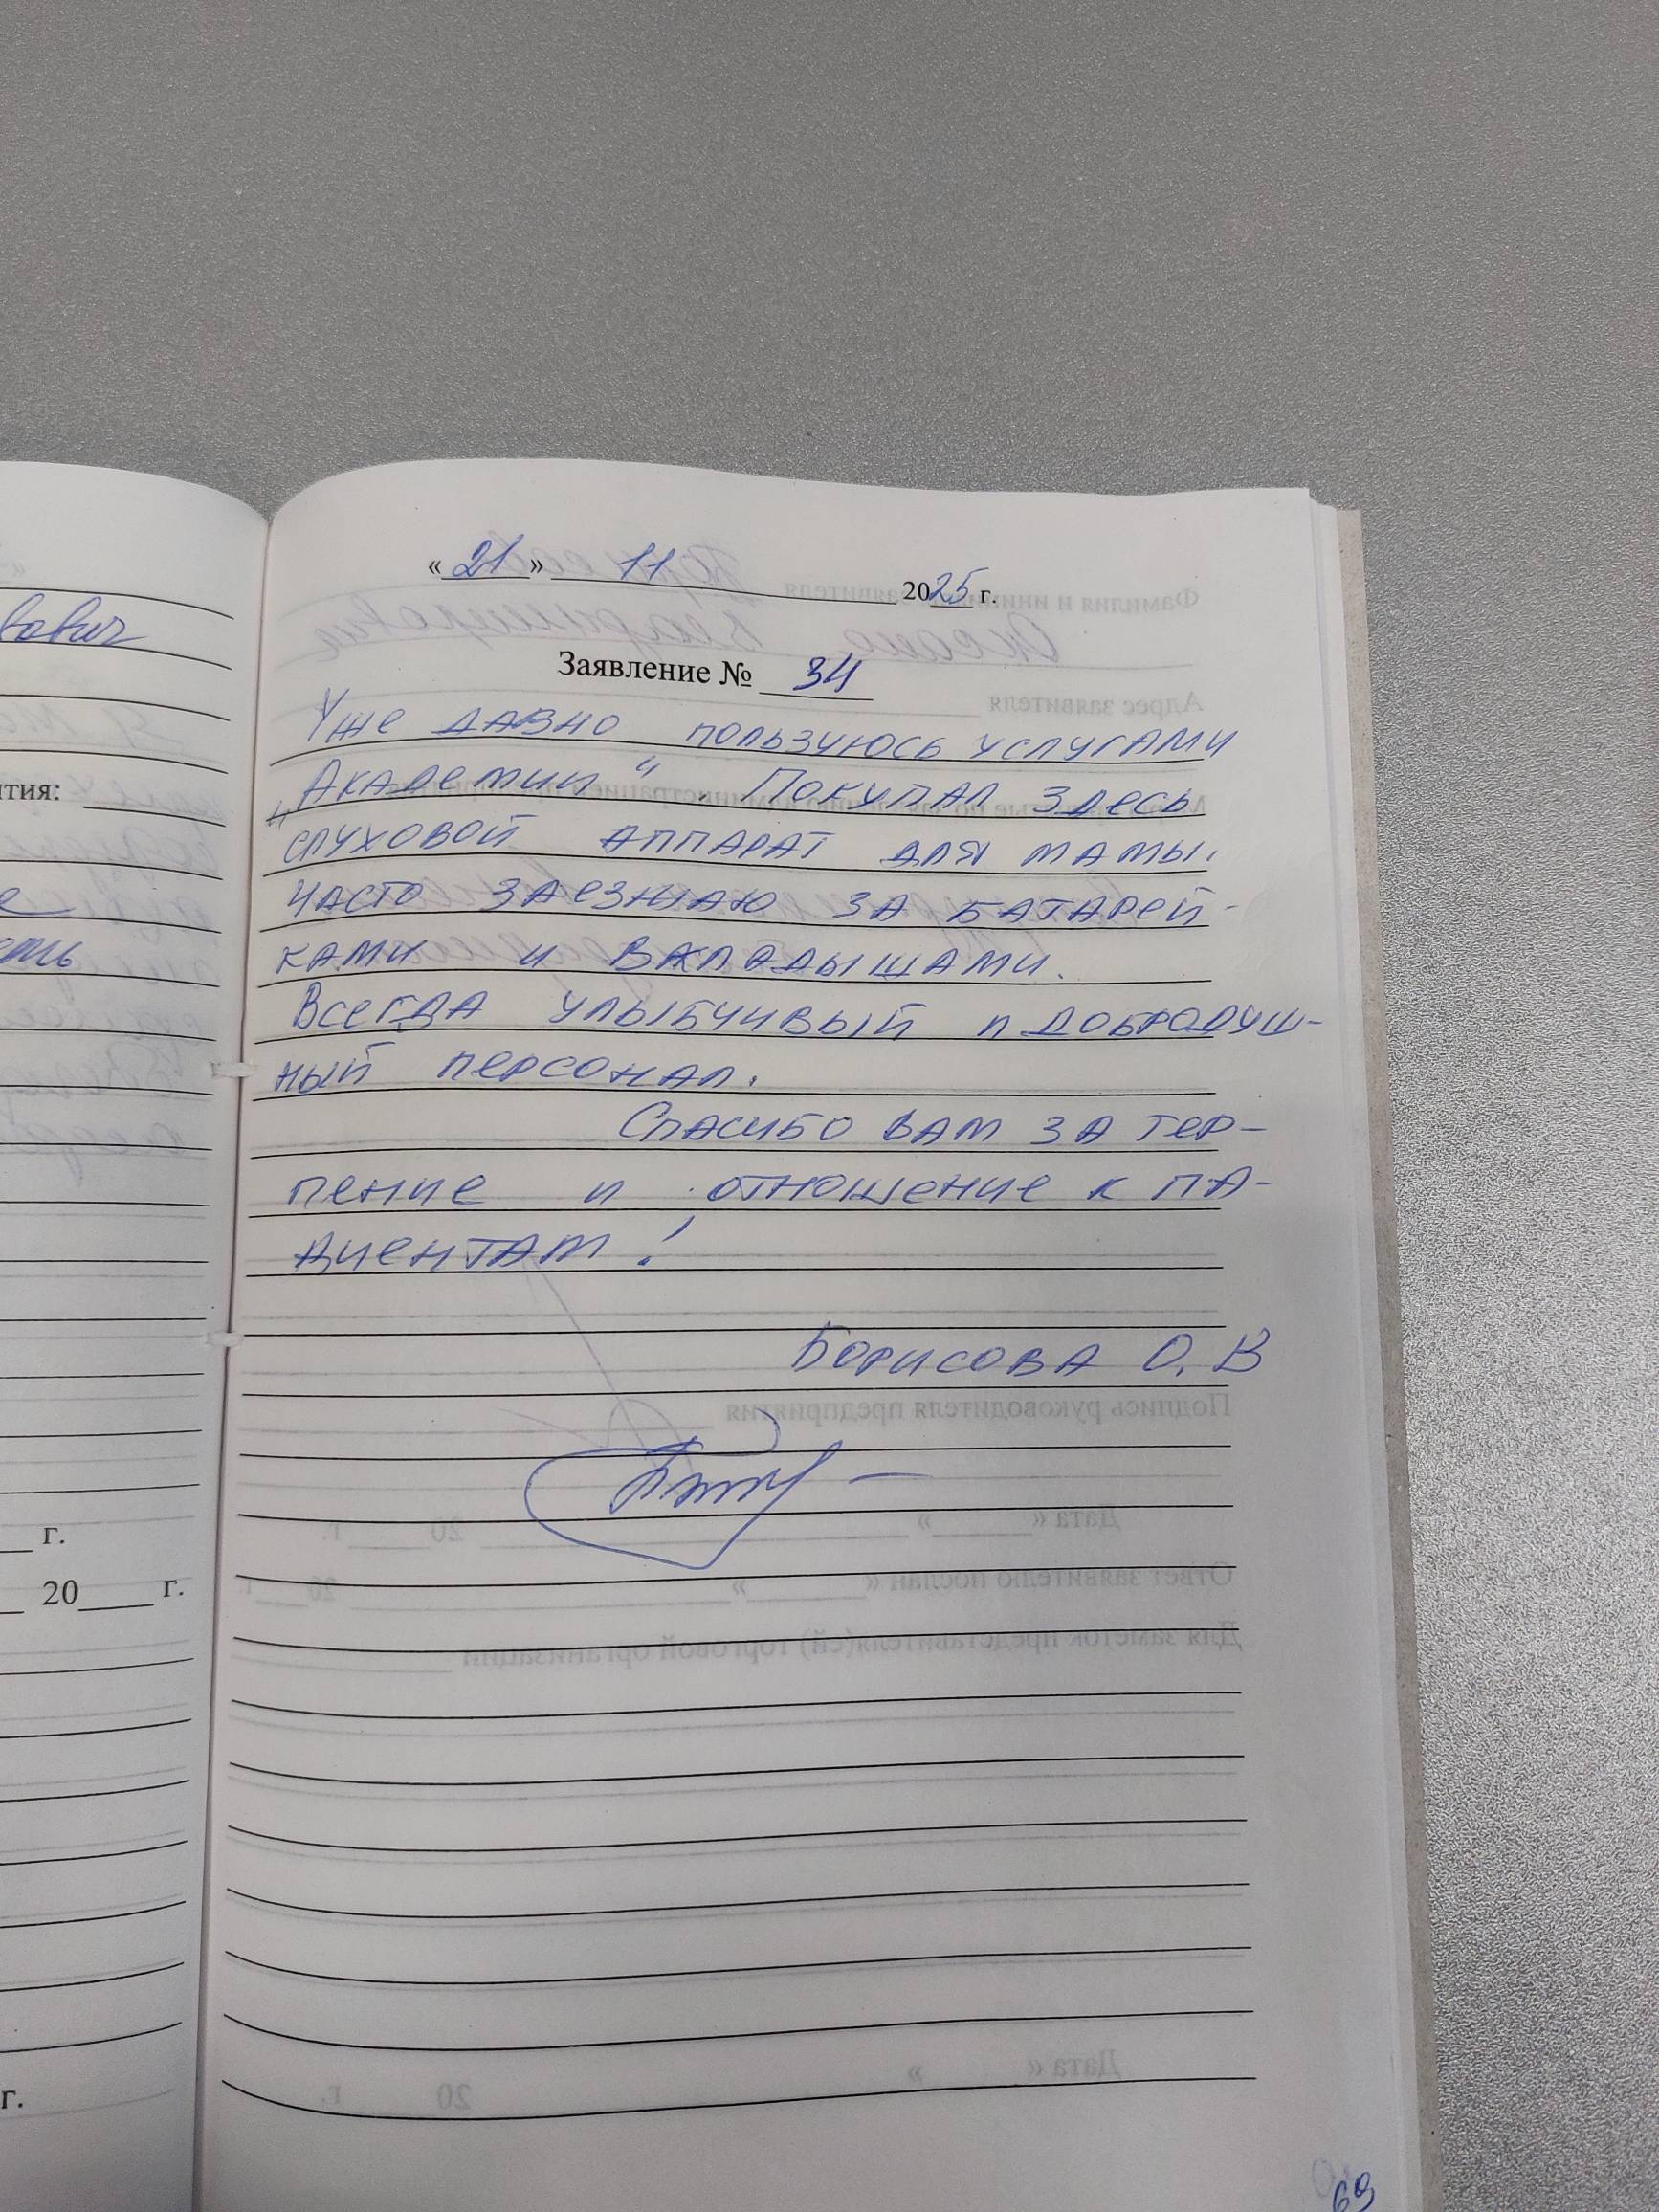 вович
тия:
г.
20 г.
г.
« 21 » 11 2025 г.
Заявление № 34
Уже давно пользуюсь услугами
„Академии“. Покупал здесь
слуховой аппарат для мамы.
Часто заезжаю за батарей-
ками и вкладышами.
Всегда улыбчивый и добродуш-
ный персонал.
Спасибо вам за тер-
пение и отношение к па-
циентам!
Борисова О. В
69